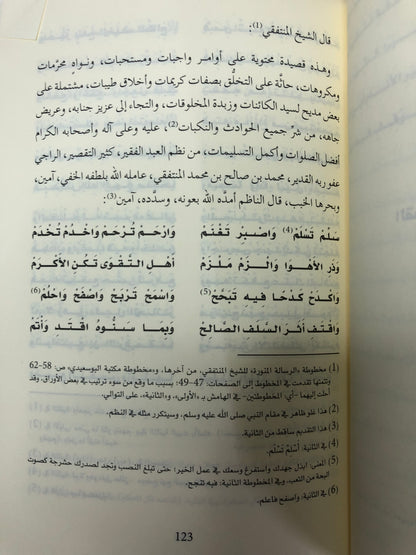 قال الشيخ المنتفقي(1):
وهذه قصيدة محتوية على أوامر واجبات ومستحبات، ونواهٍ محرّمات
ومكروهات، حاثّة على التخلُّق بصفات كريمات وأخلاق طيبات، مشتملة على
بعض مديح لسيد الكائنات وزبدة المخلوقات، والتجاء إلى عزيز جنابه، وعريض
جاهه، من شرّ جميع الحوادث والنكبات(2)، عليه وعلى آله وأصحابه الكرام
أفضل الصلوات وأكمل التسليمات، من نظم العبد الفقير، كثير التقصير، الراجي
عفو ربه القدير، محمد بن صالح بن محمد المنتفقي، عامله الله بلطفه الخفي، آمين،
وبحرها الخبب، قال الناظم أمدّه الله بعونه، وسدّده، آمين(3):
سَلِّمْ تَسْلَمْ(4) وَاصْبِرْ تَغْنَمْ وَارْحَمْ تُرْحَمْ وَاخْدُمْ تُخْدَمْ
وَذَرِ الْأَهْوَا وَالْزَمْ مَلْزَمْ أَهْلَ التَّقْوَى تَكُنِ الْأَكْرَمْ
وَاكْدَحْ كَدْحًا فِيهِ تَبْحَحْ(5) وَاسْمَحْ تَرْبَحْ وَاصْفَحْ وَاحْلُمْ(6)
وَاقْتَفِ أَثَرَ السَّلَفِ الصَّالِحْ وَبِمَا سَنُّوهُ اقْتَدِ وَأْتَمْ
(1) مخطوطة «الرسالة المنورة» للشيخ المنتفقي، من آخرها، و«مخطوطة مكتبة البوسعيدي»، ص: 58-62
وتتمتها تقدمت في المخطوط إلى الصفحات. 47-49؛ بسبب ما وقع من سوء ترتيب في بعض الأوراق، وقد
أحلت إليهما - أي: المخطوطتين - في الهامش بـ «الأولى»، و«الثانية»، على التوالي.
(2) هذا غلو ظاهر في مقام النبي صلى الله عليه وسلم، وسيتكرر مثله في النظم.
(3) هذا التقديم ساقط من الثانية.
(4) في الثانية: أَسْلِمْ تَسْلَمْ.
(5) المعنى: ابذل جهدك واستفرغ وسعك في عمل الخير؛ حتى تبلغ النصب وتجد لصدرك حشرجة كصوت
البحة من التعب. وفي المخطوطة الثانية: فيه تنجح.
(6) في الثانية: واصفح فاعلم.
123